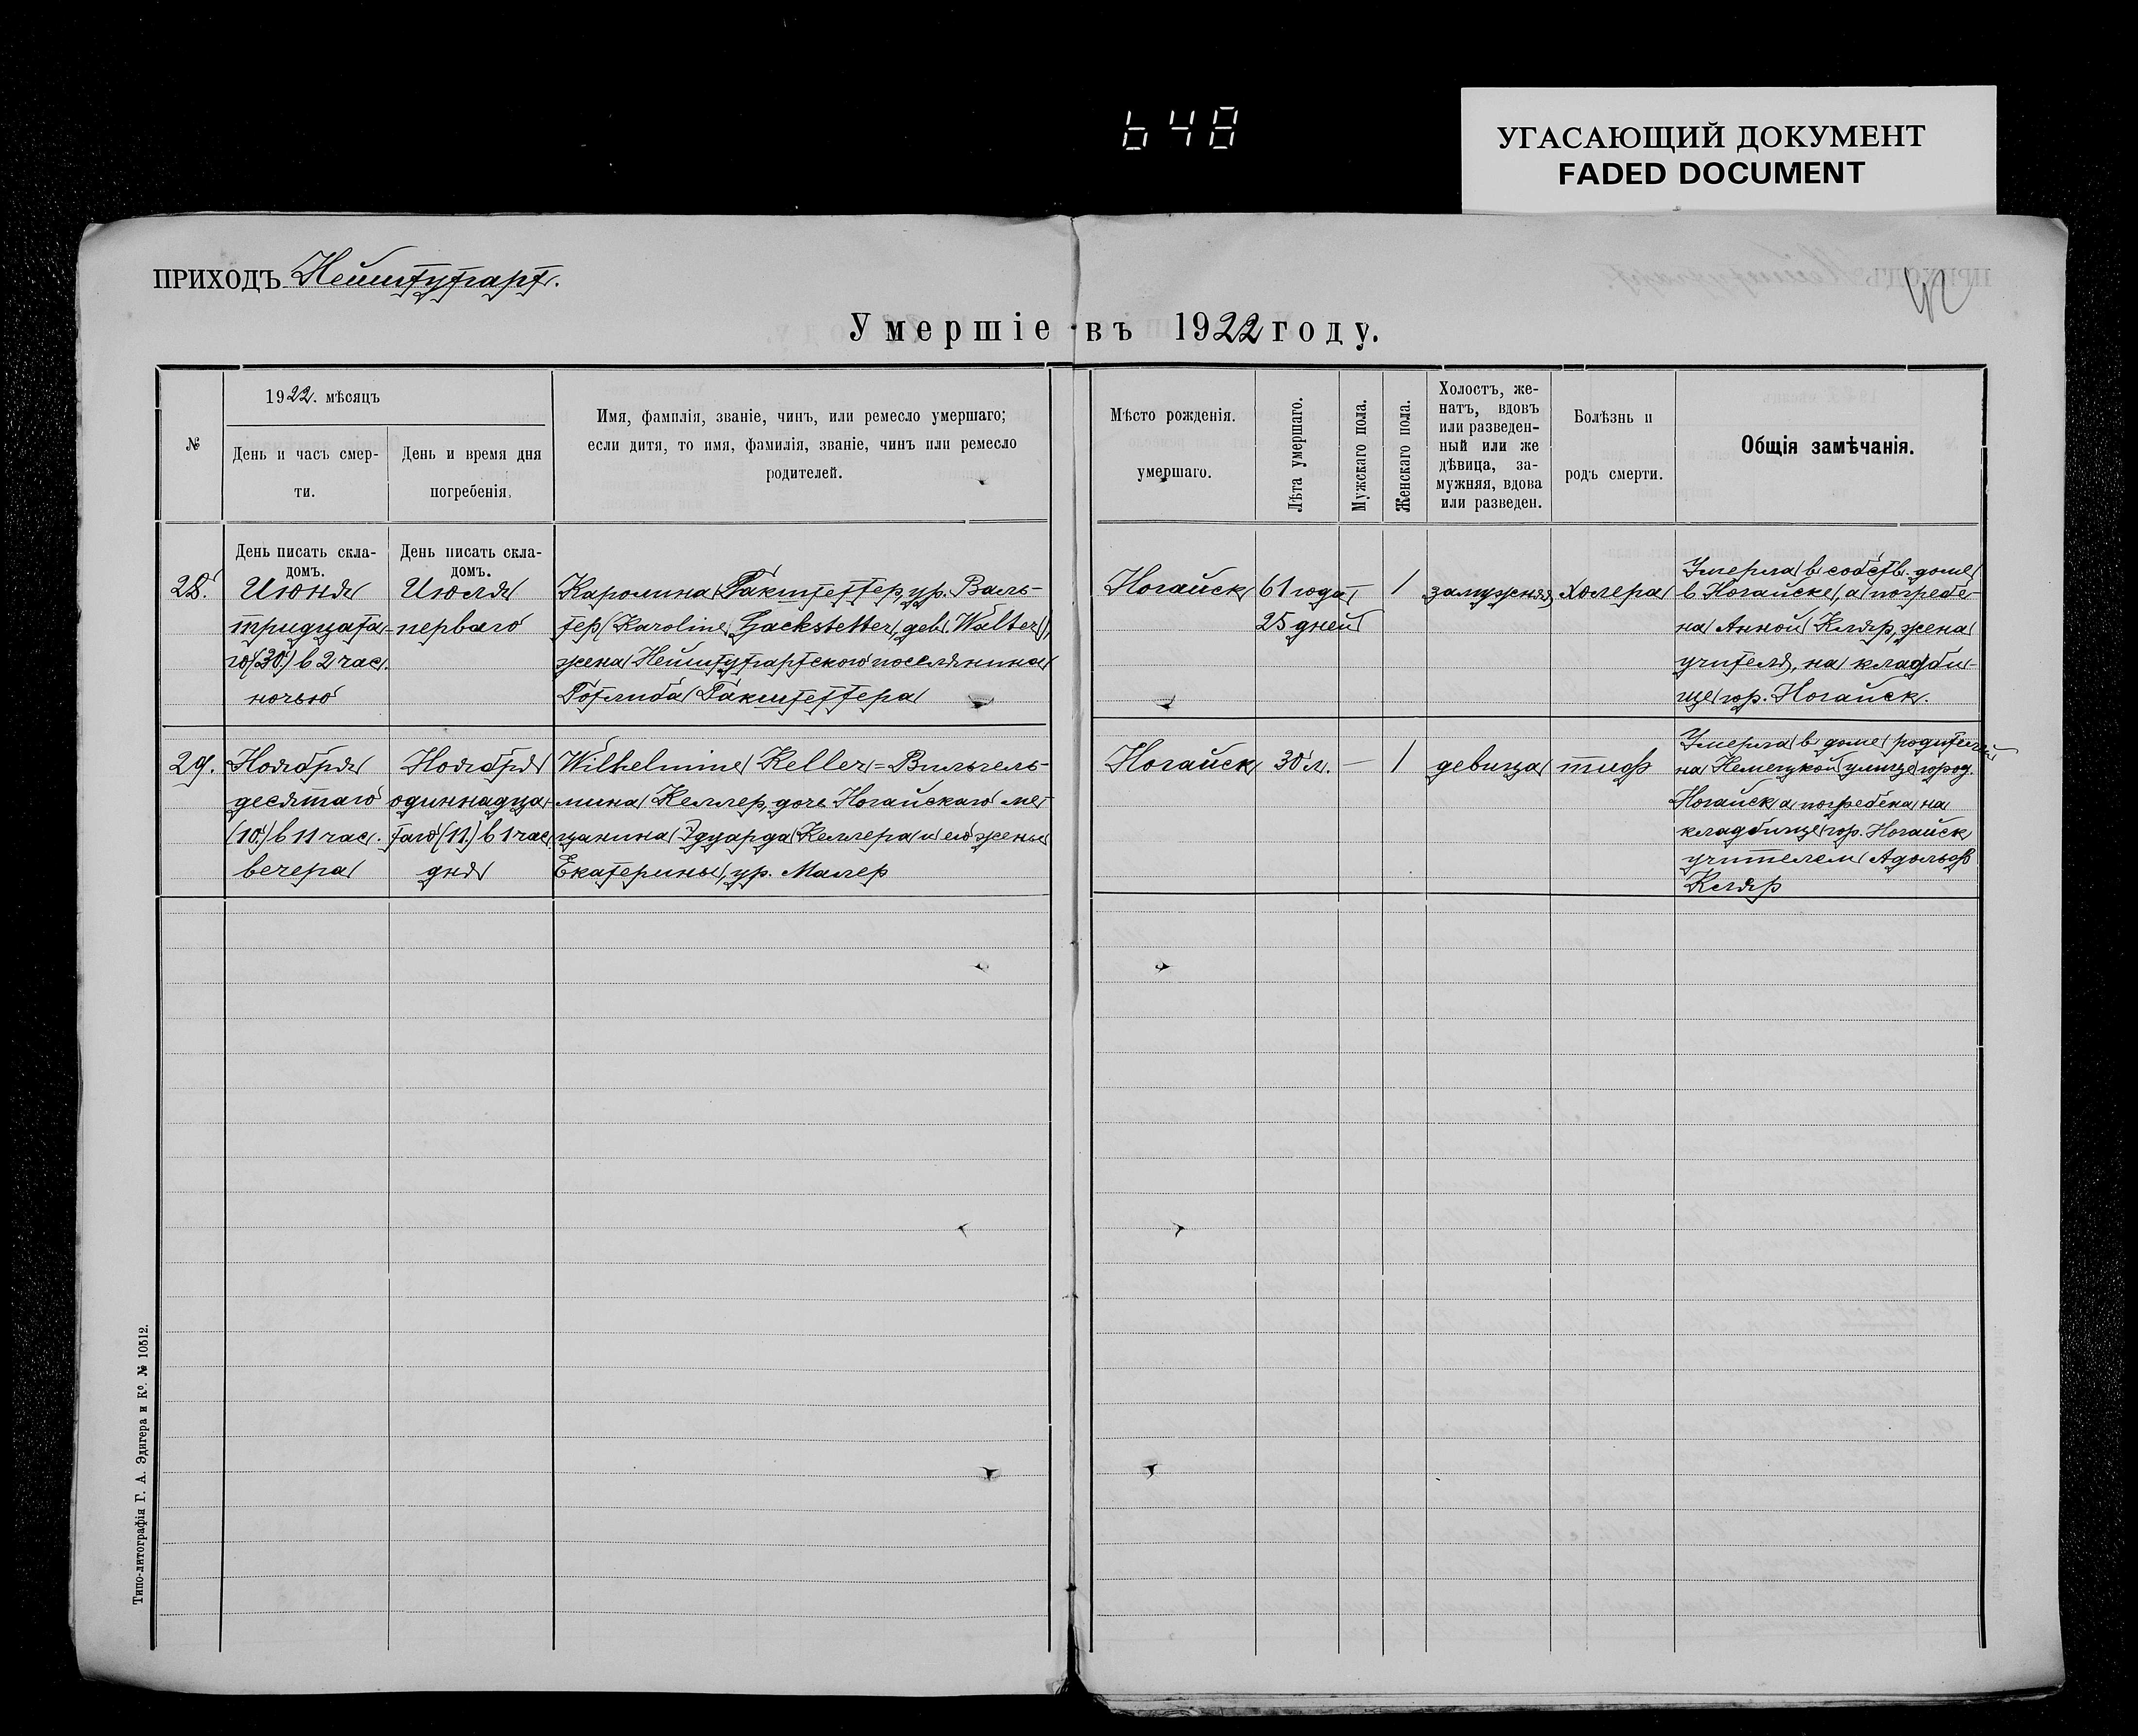 648
УГАСАЮЩИЙ ДОКУМЕНТ
FADED DOCUMENT
ПРИХОДЪ Нейштутгарт.
Умершіе въ 1922 году.
№
1922. мѣсяцъ
День и часъ смер-
ти.
День и время дня
погребенія.
Имя, фамилія, званіе, чинъ, или ремесло умершаго;
если дитя, то имя, фамилія, званіе, чинъ или ремесло
родителей.
Мѣсто рожденія.
умершаго.
Лѣта умершаго.
Мужскаго пола.
Женскаго пола.
Холостъ, же-
натъ, вдовъ
или разведен-
ный или же
дѣвица, за-
мужняя, вдова
или разведен.
Болѣзнь и
родъ смерти.
Общія замѣчанія.
День писать скла-
домъ.
День писать скла-
домъ.
28.
Июня
тридцата-
го (30) в 2 час.
ночью
Июля
перваго
Каролина Гакштеттер, ур. Валь-
тер (Karoline Hackstetter, geb. Walter),
жена Нейштутгартского поселянина
Готлиба Гакштеттера
Ногайск
61 года
25 дней
—
1
замужняя
холера
Умерла в собств. доме
в Ногайске, а погребе-
на Анной Кляр, жена
учителя, на кладби-
ще гор. Ногайск.
29.
Ноября
десятаго
(10.) в 11 час.
вечера
Ноября
одиннадца-
таго (11.) в 1 час
дня
Wilhelmine Keller = Вильгель-
мина Келлер, дочь Ногайскаго ме-
щанина Эдуарда Келлера и его жены
Екатерины, ур. Малер
Ногайск
30 л.
—
1
девица
тиф
Умерла в доме родителей
на Немецкой улице город.
Ногайск а погребена на
кладбище гор. Ногайск
учителем Адольф
Кляр
Типо-литографія Г. А. Эдигера и Ко. № 10512.